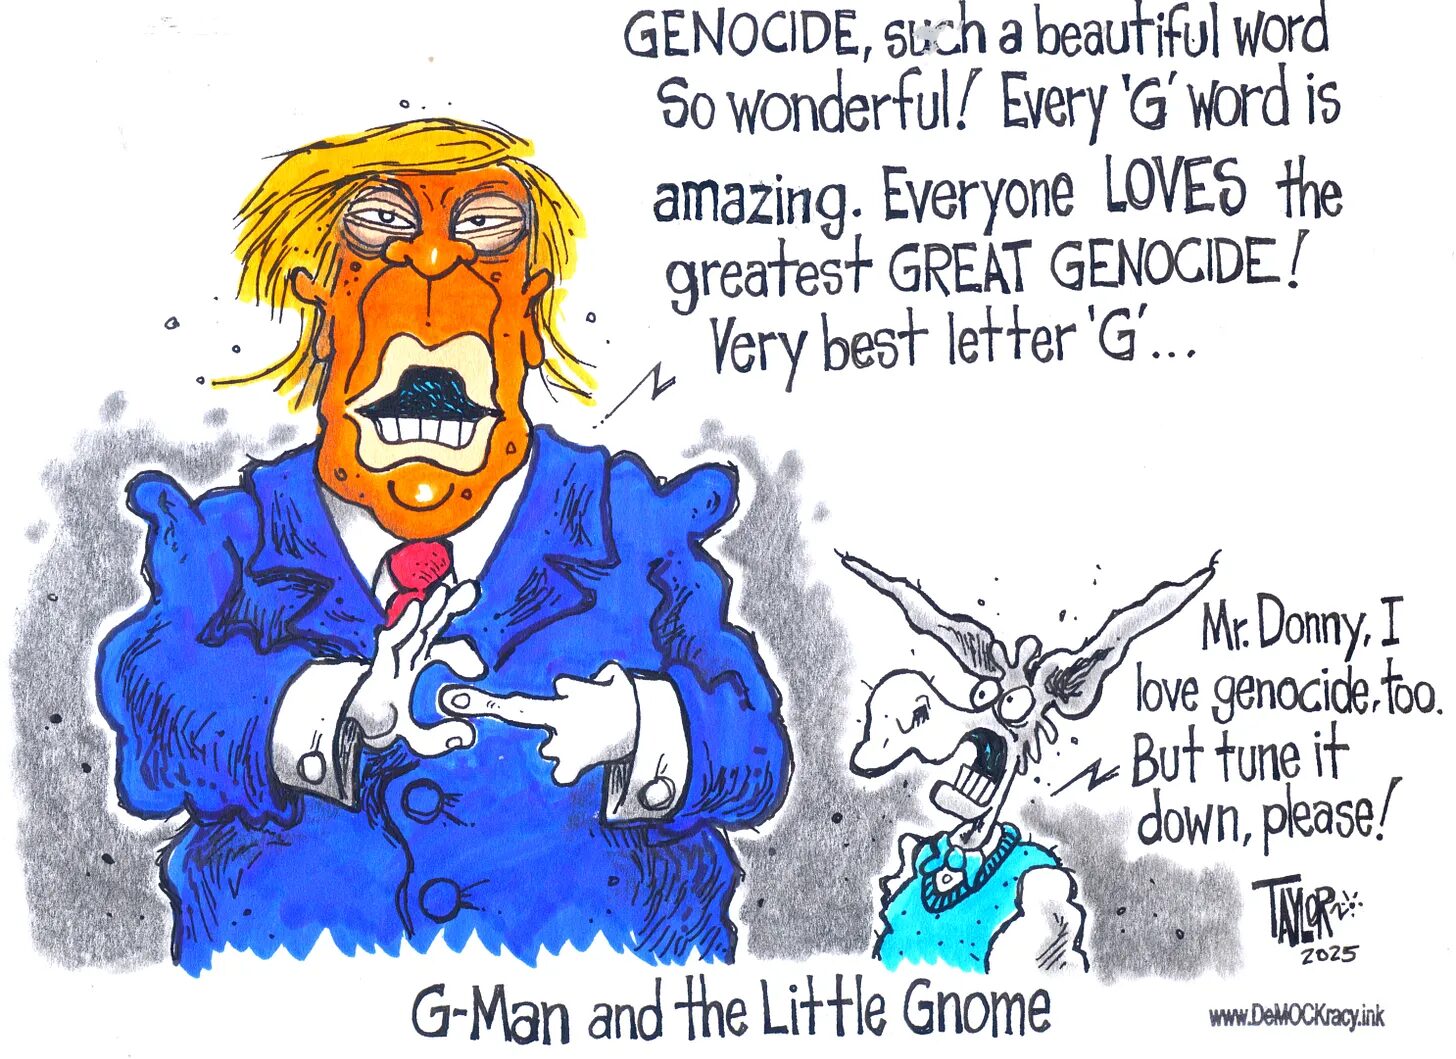 GENOCIDE, such a beautiful word
So wonderful! Every 'G' word is
amazing. Everyone LOVES the
greatest GREAT GENOCIDE!
Very best letter 'G'...
Mr. Donny, I
love genocide, too.
But tune it
down, please!
TAYLOR
2025
G-Man and the Little Gnome
www.DeMOCKracy.ink